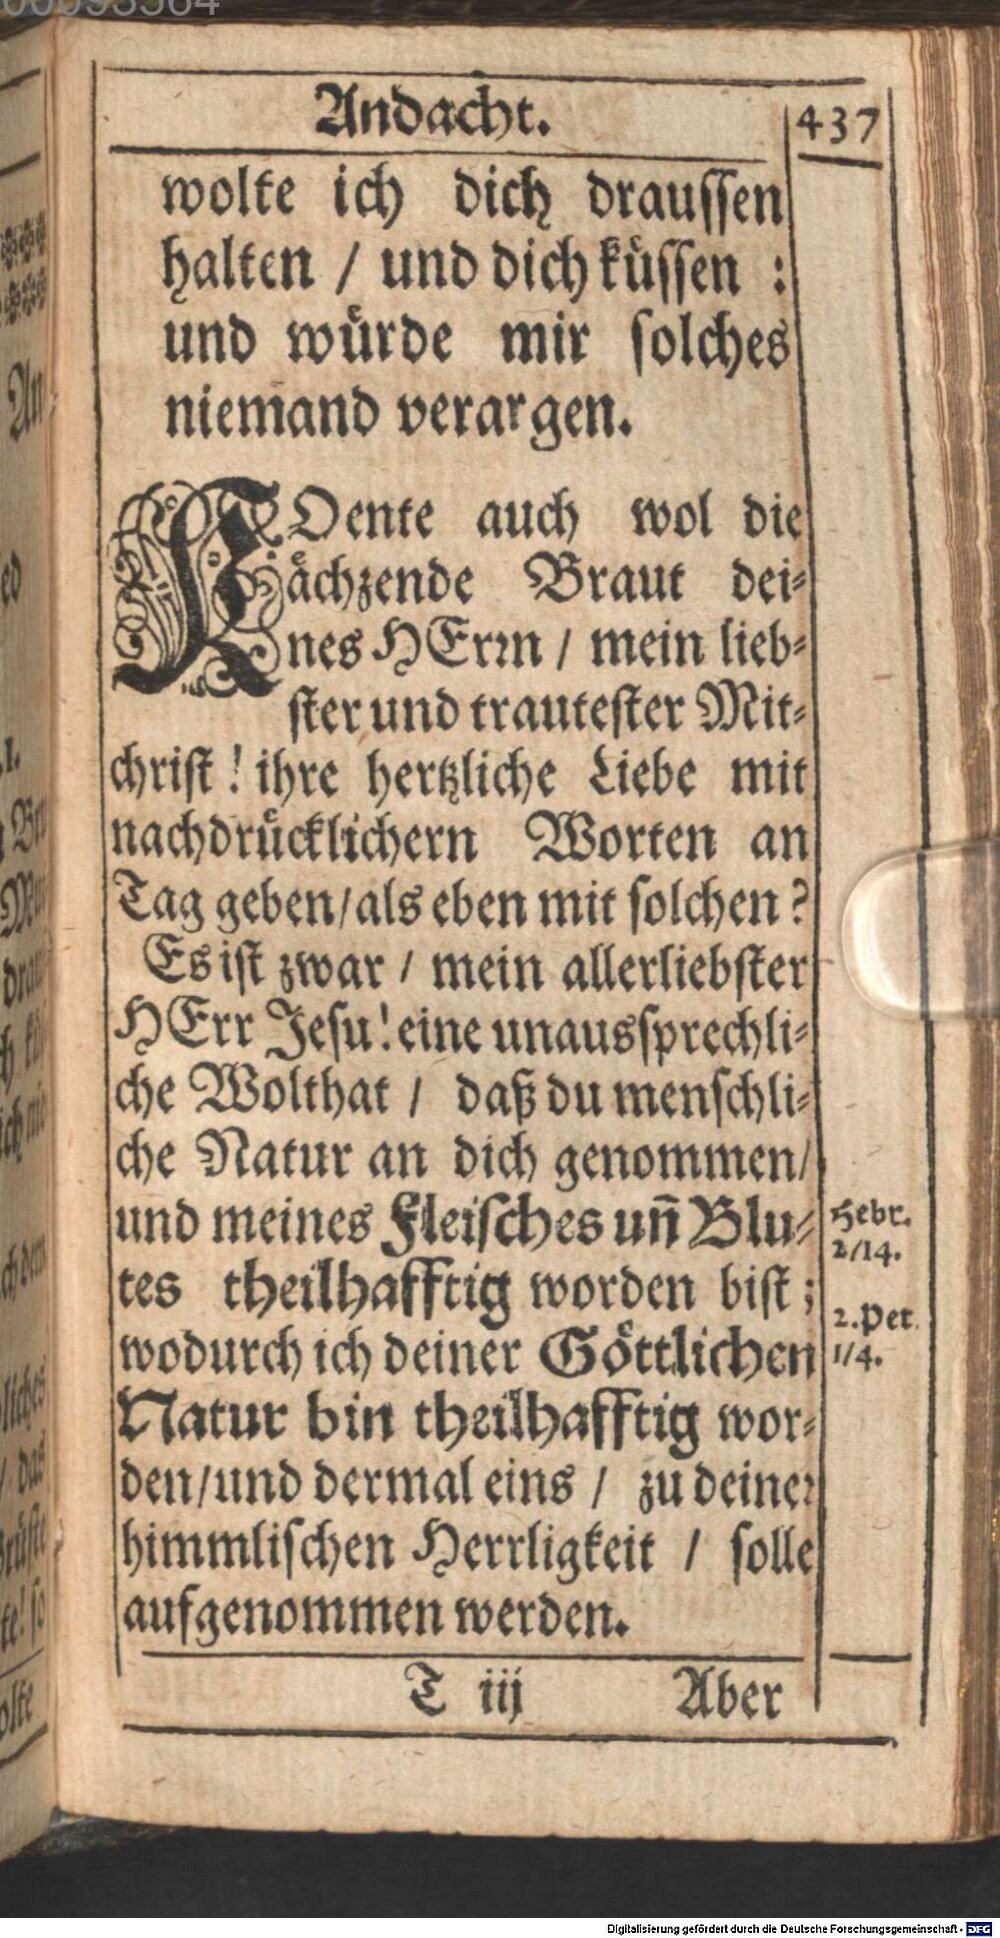 Andacht. 437
wolte ich dich draussen
halten / und dich küssen :
und würde mir solches
niemand verargen.
KOente auch wol die
ächzende Braut dei-
nes HErrn / mein lieb-
ster und trautester Mit-
christ ! ihre hertzliche Liebe mit
nachdrücklichern Worten an
Tag geben / als eben mit solchen ?
Es ist zwar / mein allerliebster
HErr Jesu ! eine unaussprechli-
che Wolthat / daß du menschli-
che Natur an dich genommen /
und meines Fleisches uñ Blu-
tes theilhafftig worden bist ;
wodurch ich deiner Göttlichen
Natur bin theilhafftig wor-
den / und dermal eins / zu deiner
himmlischen Herrligkeit / solle
aufgenommen werden.
Hebr.
2/14.
2. Pet.
1/4.
T iij Aber
Digitalisierung gefördert durch die Deutsche Forschungsgemeinschaft - DFG